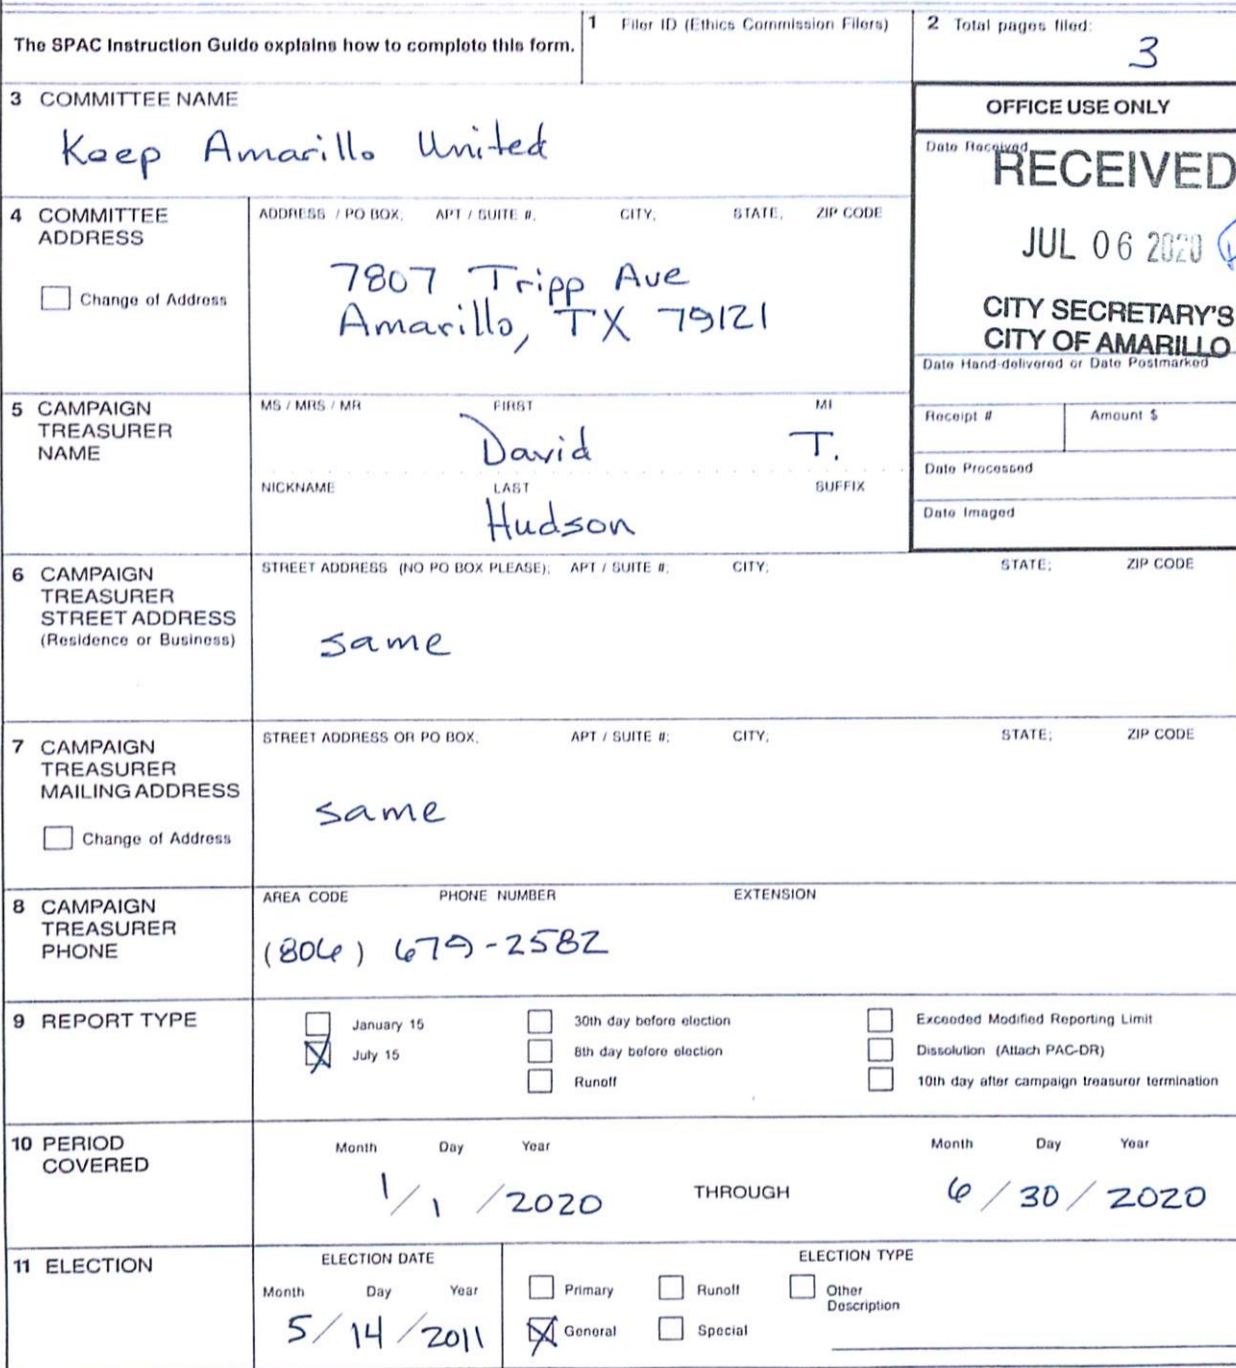 The SPAC Instruction Guide explains how to complete this form.
1 Filer ID (Ethics Commission Filers)
2 Total pages filed:
3
3 COMMITTEE NAME
Keep Amarillo United
OFFICE USE ONLY
Date Received
RECEIVED
JUL 06 2020
CITY SECRETARY'S
CITY OF AMARILLO
Date Hand-delivered or Date Postmarked
Receipt #
Amount $
Date Processed
Date Imaged
4 COMMITTEE
ADDRESS
Change of Address
ADDRESS / PO BOX; APT / SUITE #; CITY; STATE; ZIP CODE
7807 Tripp Ave
Amarillo, TX 79121
5 CAMPAIGN
TREASURER
NAME
MS / MRS / MR FIRST MI
David T.
NICKNAME LAST SUFFIX
Hudson
6 CAMPAIGN
TREASURER
STREET ADDRESS
(Residence or Business)
STREET ADDRESS (NO PO BOX PLEASE); APT / SUITE #; CITY; STATE; ZIP CODE
same
7 CAMPAIGN
TREASURER
MAILING ADDRESS
Change of Address
STREET ADDRESS OR PO BOX; APT / SUITE #; CITY; STATE; ZIP CODE
same
8 CAMPAIGN
TREASURER
PHONE
AREA CODE PHONE NUMBER EXTENSION
(806) 679-2582
9 REPORT TYPE
January 15
July 15
30th day before election
8th day before election
Runoff
Exceeded Modified Reporting Limit
Dissolution (Attach PAC-DR)
10th day after campaign treasurer termination
10 PERIOD
COVERED
Month Day Year
1/1/2020
THROUGH
Month Day Year
6/30/2020
11 ELECTION
ELECTION DATE
Month Day Year
5/14/2011
ELECTION TYPE
Primary
Runoff
Other
Description
General
Special